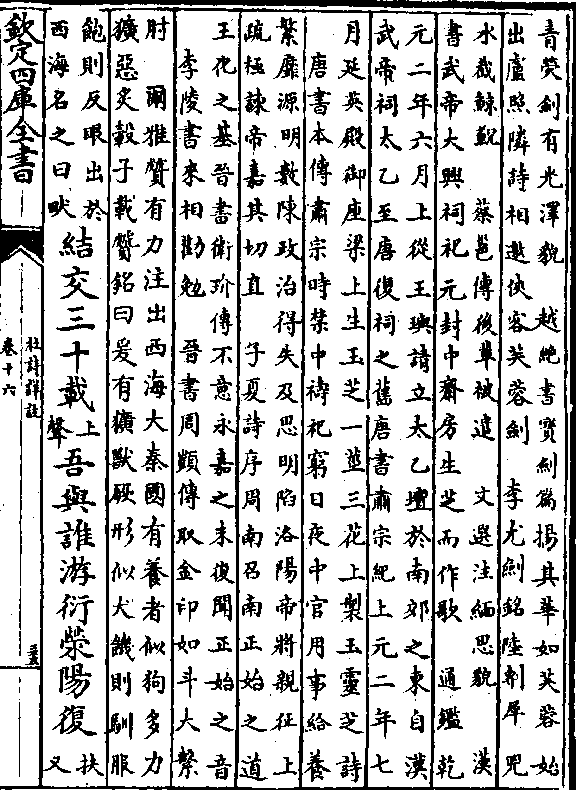 青熒劍有光澤貌　越絶書寳劍篇揚其華如芙蓉始
出盧照隣詩相邀俠客芙蓉劍　李尤劍銘陸剸犀兕
水截鯨鯢　蔡邕傳後輩被遣　文選注緬思貌　漢
書武帝大興祠祀元封中齋房生芝而作歌　通鑑乾
元二年六月上從王璵請立太乙壇於南郊之東自漢
武帝祠太乙至唐復祠之舊唐書肅宗紀上元二年七
月延英殿御座梁上生玉芝一莖三花上製玉靈芝詩
唐書本傳肅宗時禁中禱祀窮日夜中官用事給養
繁靡源明數陳政治得失及思明陷洛陽帝將親征上
疏極諫帝嘉其切直　子夏詩序周南召南正始之道
王化之基晉書衛玠傳不意永嘉之末復聞正始之音
李陵書來相勸勉　晉書周顗傳取金印如斗大繫
肘　爾雅贙有力注出西海大秦國有養者似狗多力
獷惡炙轂子載贙銘曰爰有獷獸厥形似犬饑則馴服
飽則反眼出於
西海名之曰㕹
結交三十載上聲吾與誰游衍滎陽復扶又
欽定四庫全書
杜詩詳註
卷十六